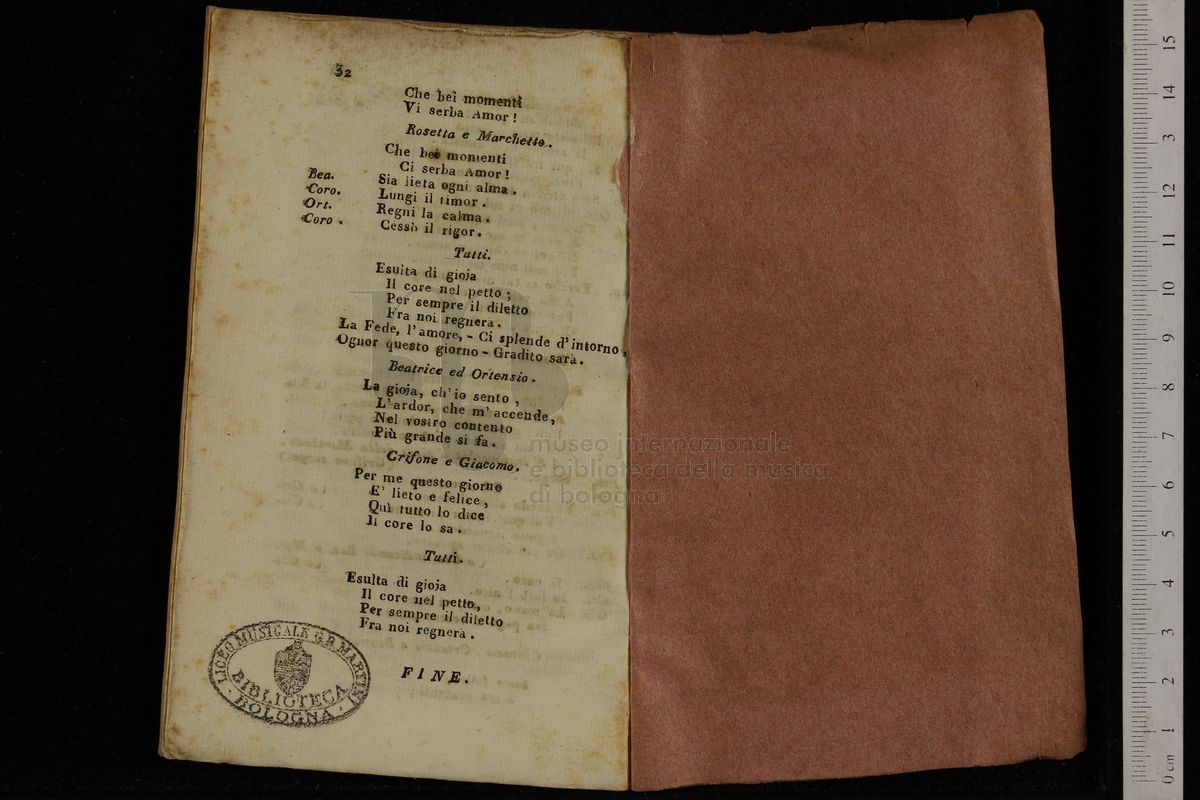 32
Che bei momenti
Vi serba Amor !
Rosetta e Marchetto.
Che bei momenti
Ci serba Amor !
Bea. Sia lieta ogni alma .
Coro. Lungi il timor .
Ort. Regni la calma .
Coro . Cessò il rigor .
Tutti.
Esulta di gioja
Il core nel petto ;
Per sempre il diletto
Fra noi regnerà .
La Fede, l'amore, - Ci splende d'intorno ,
Ognor questo giorno - Gradito sarà .
Beatrice ed Ortensio .
La gioja, ch'io sento ,
L'ardor, che m'accende,
Nel vostro contento
Più grande si fa .
Grifone e Giacomo.
Per me questo giorno
E' lieto e felice ,
Quì tutto lo dice
Il core lo sa .
Tutti.
Esulta di gioja
Il core nel petto,
Per sempre il diletto
Fra noi regnerà .
FINE.
LICEO MUSICALE G.B. MARTINI
BIBLIOTECA
BOLOGNA
museo internazionale
e biblioteca della musica
di bologna
15
14
13
12
11
10
9
8
7
6
5
4
3
2
1
0 cm